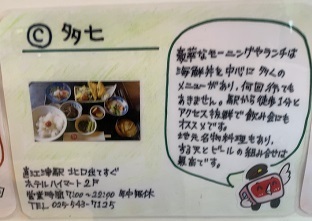 Ⓒ 多七
豪華なモーニングやランチは
海鮮丼を中心に多くの
メニューがあり、何回行っても
あきません。駅から徒歩1分と
アクセス抜群で飲み会にも
オススメです。
地元名物料理もあり、
する天とビールの組み合せは
最高です。
直江津駅 北口出てすぐ
ホテルハイマート2F
営業時間 7:00~22:00 年中無休
TEL 025-543-7125